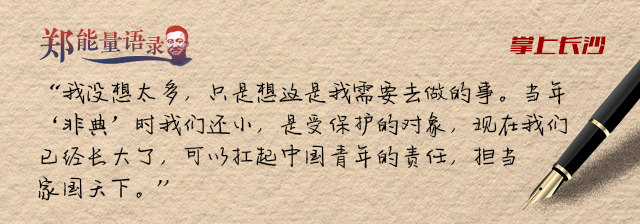 郑能量语录
掌上长沙
“我没想太多，只是想这是我需要去做的事。当年
‘非典’时我们还小，是受保护的对象，现在我们
已经长大了，可以扛起中国青年的责任，担当
家国天下。”